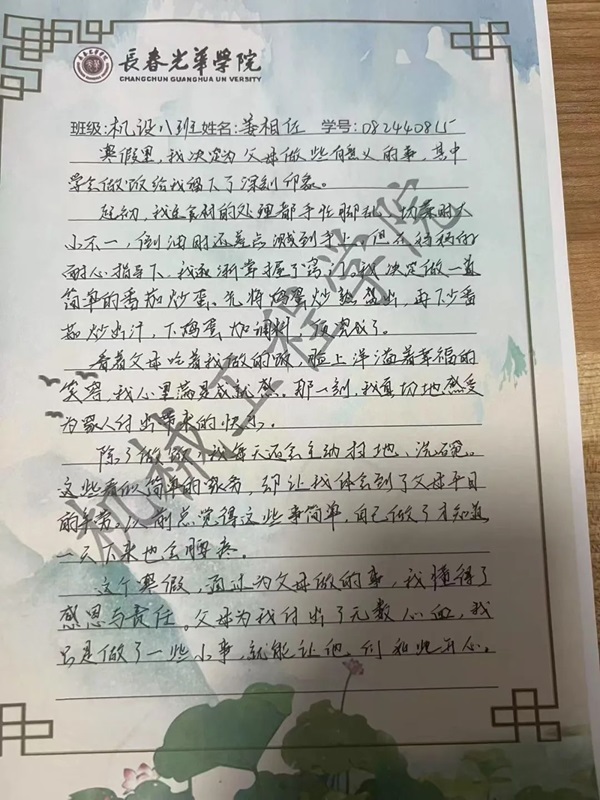 長春光華學院
CHANGCHUN GUANGHUA UNIVERSITY
班级:机设八班 姓名:姜相伍 学号:082440815
寒假里,我决定为父母做些有意义的事,其中
学会做饭给我留下了深刻印象。
起初,我连食材的处理都手忙脚乱,切菜时大
小不一,倒油时还差点溅到手上。但在妈妈的
耐心指导下,我逐渐掌握了窍门。我决定做一道
简单的番茄炒蛋。先将鸡蛋炒熟盛出,再下少番
茄炒出汁,下鸡蛋加调料,顶级成了。
看着父母吃着我做的饭,脸上洋溢着幸福的
笑容,我心里满是成就感。那一刻,我真切地感受
为家人付出带来的快乐。
除了做饭,我每天还会主纳扫地、洗碗。
这些看似简单的家务,却让我体会到了父母平日
的辛劳。以前总觉得这些事简单,自己做了才知道
一天下来也会腰疼。
这个寒假,通过为父母做的事,我懂得了
感恩与责任。父母为我付出了无数心血,我
只是做了一些小事,就能让他们如此开心。
机械工程学院